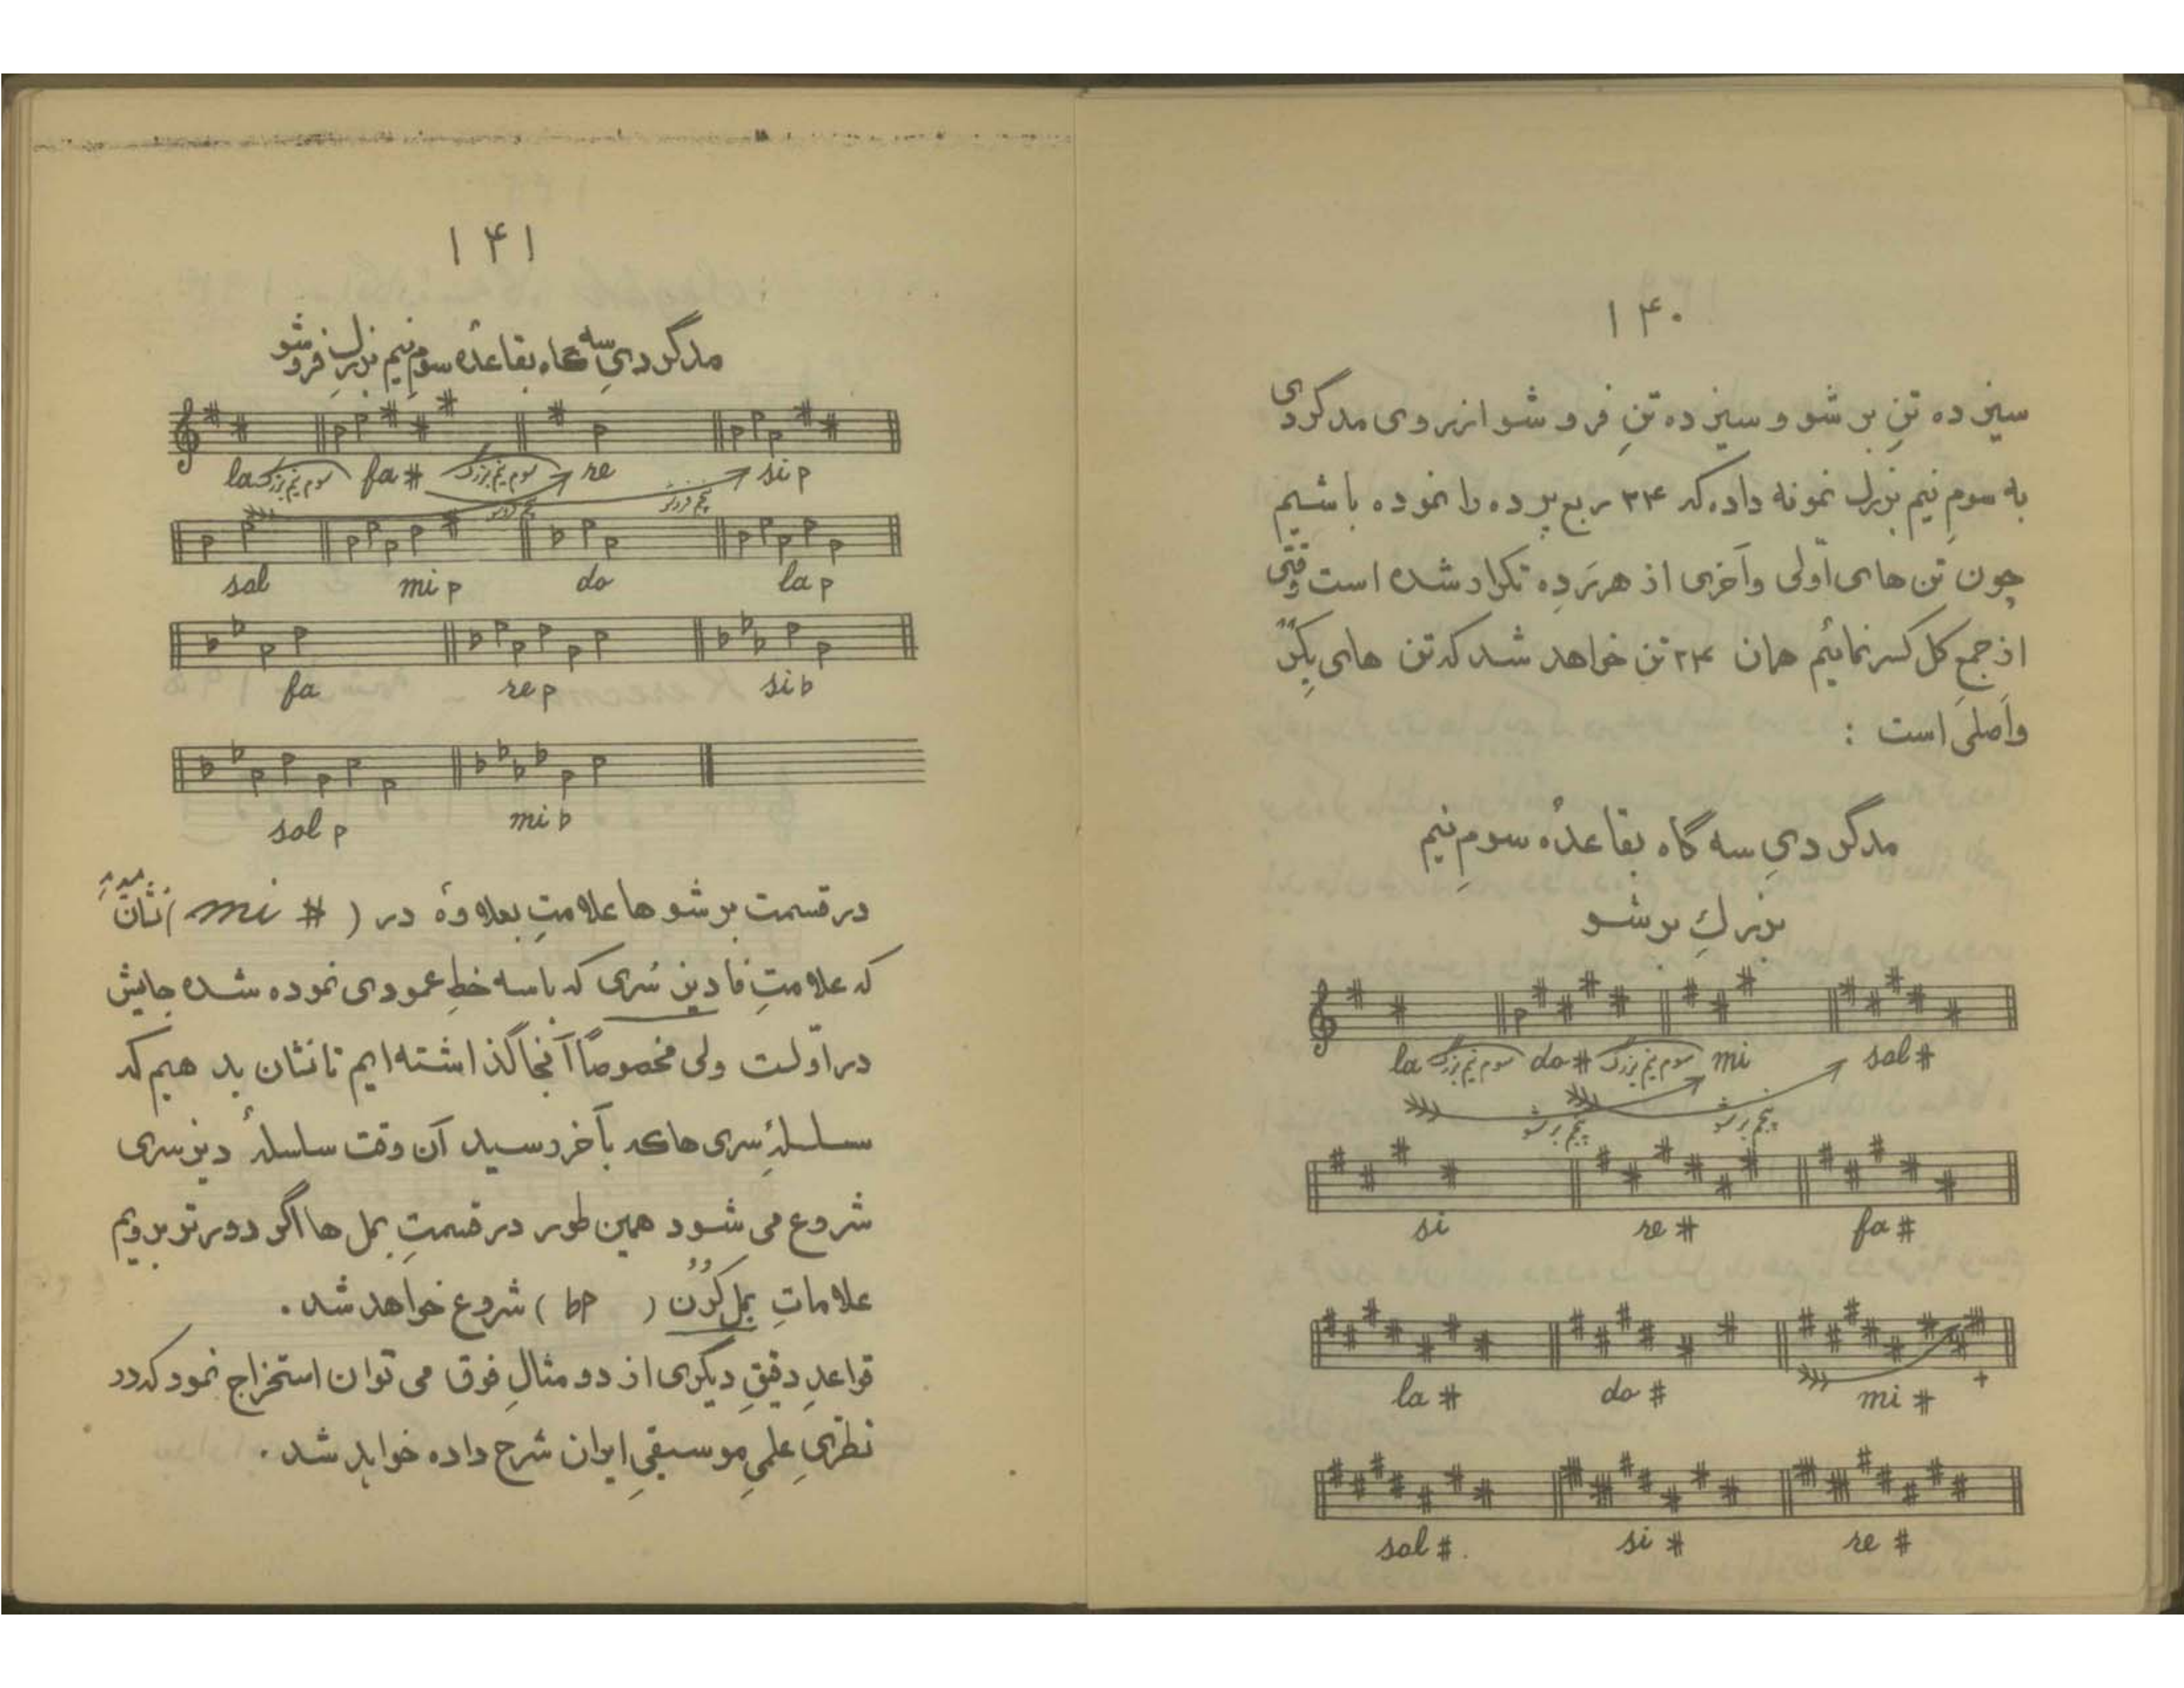 ۱۴۰
سیزده تنِ بر شو و سیزده تنِ فرو شو از روی مدگردی
به سومِ نیم بزرگ نمونه داده که ۲۴ ربع پرده را نموده باشیم
چون تن های اوّلی و آخری از هر پَرده تکرار شده است وقتی
از جمعِ کل کسر نمائیم همان ۲۴ تن خواهد شد که تن های
واَصلی است :
مدگردیِ سه گاه بقاعدهٔ سومِ نیم
بزرگِ بر شو
la سوم نیم بزرگ do # سوم نیم بزرگ mi sol #
پنجم بر شو پنجم بر شو
si re # fa #
la # do # mi # +
sol # si # re #
۱۴۱
مدگردیِ سه گاه بقاعدهٔ سومِ نیم بزرگِ فروشو
la سوم نیم بزرگ fa # سوم نیم بزرگ re si p
پنجم فروشو پنجم فروشو
sol mi p do la p
fa re p si b
sol p mi b
در قسمت بر شو ها علامتِ بعلاوهٔ در ( mi # ) نشان
که علامتِ فا دیز سُری که با سه خطِ عمودی نموده شده جایش
در اوّلت ولی مخصوصاً آنجا گذاشته ایم تا نشان بد هیم که
سلسلهٔ سری ها که بآخر رسید آن وقت سلسلهٔ دیز سری
شروع می شود همین طور در قسمتِ بمل ها اگر دورتر برویم
علاماتِ بمل کُرُن ( bp ) شروع خواهد شد .
قواعدِ دقیقِ دیگری از دو مثالِ فوق می توان استخراج نمود که در
نظریِ علمیِ موسیقیِ ایران شرح داده خواهد شد .